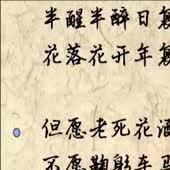 半醒半醉日复
花落花开年复
但愿老死花酒
不愿鞠躬车马